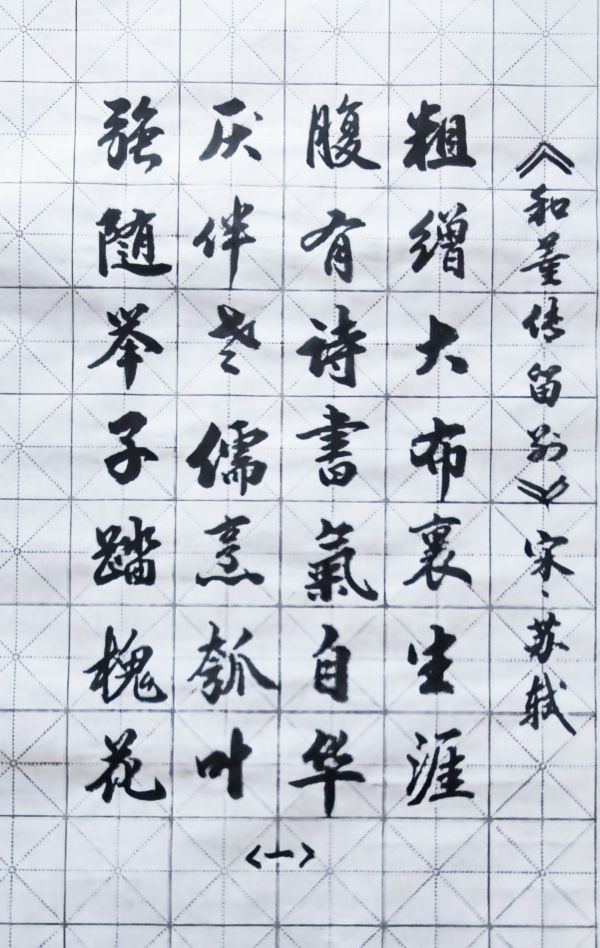 《和董传留别》宋、苏轼
粗缯大布裹生涯
腹有诗書氣自华
厌伴老儒烹瓠叶
强随举子踏槐花
<一>